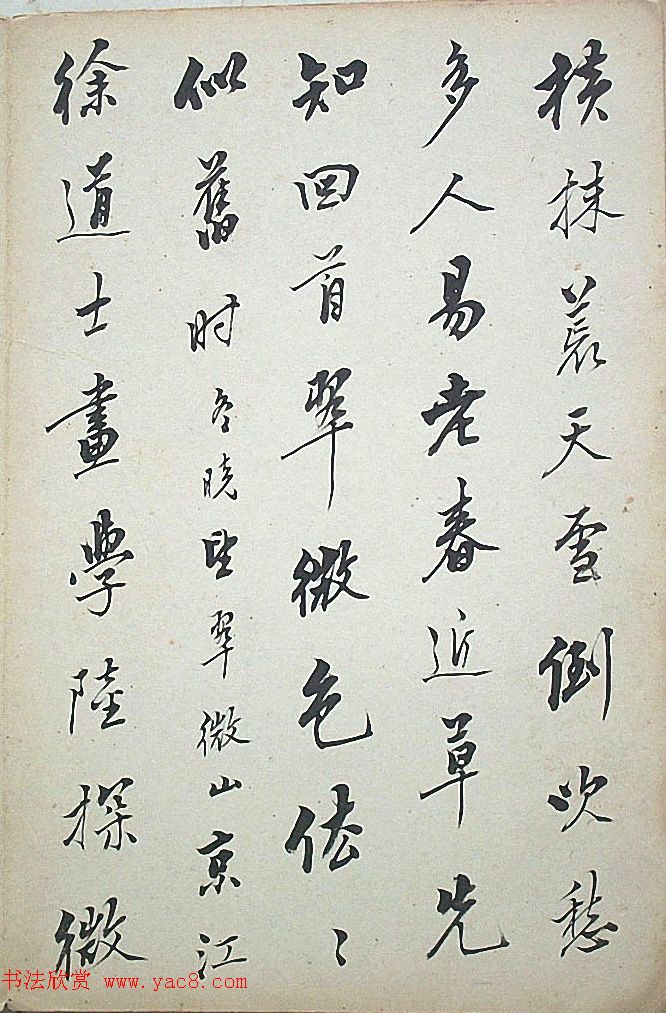 横抹荒天雪倒吹愁
多人易老春近草先
知回首翠微色依〻
似舊时冬晓望翠微山京江
徐道士畫學陸探微
书法欣赏 www.yac8.com